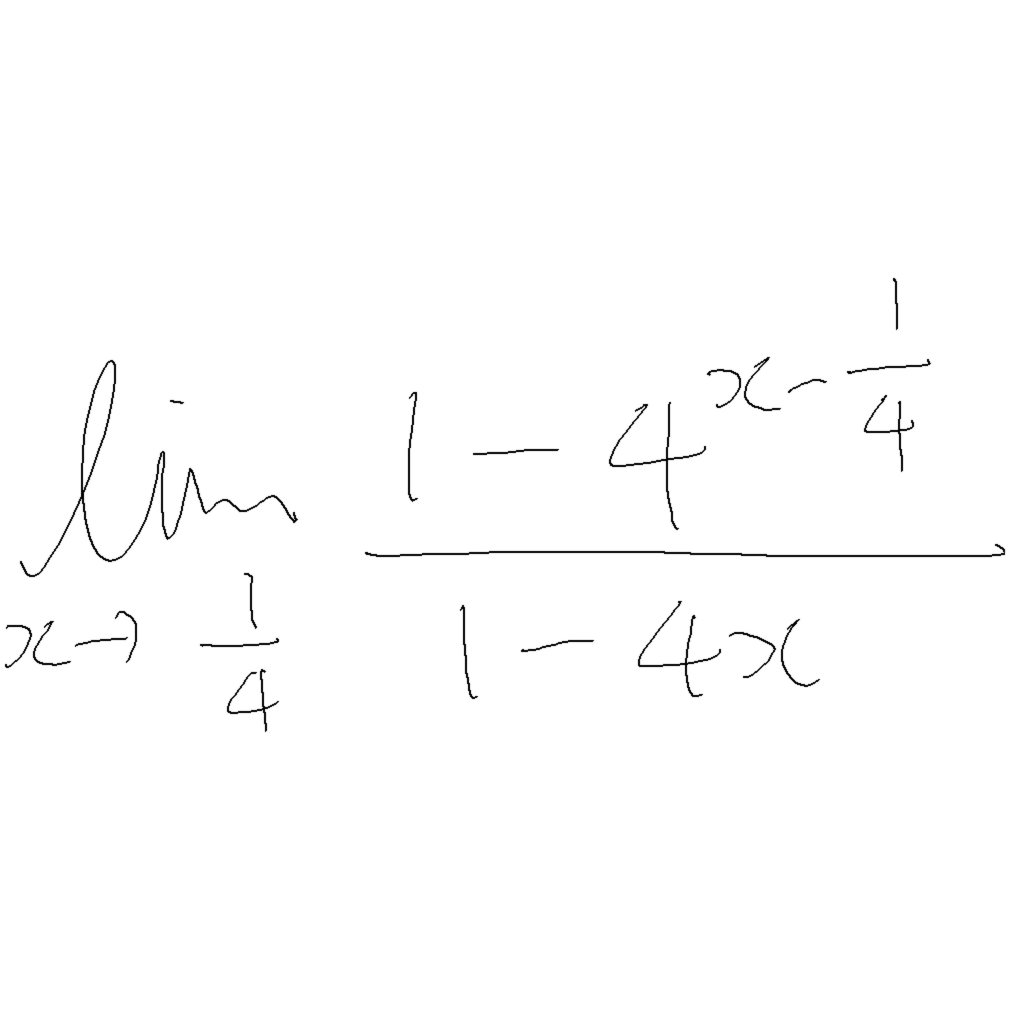 lim_{x→\frac{1}{4}} \frac{1-4^{x-\frac{1}{4}}}{1-4x}